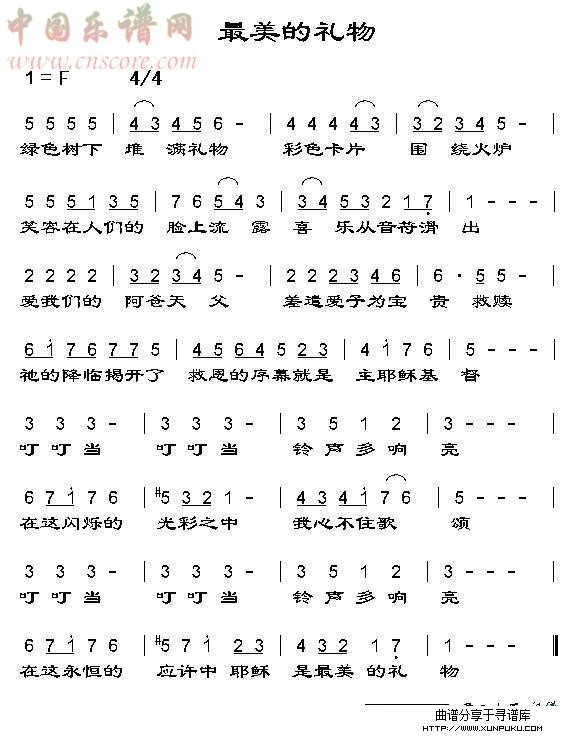 中国乐谱网
www.cnscore.com
最美的礼物
1=F 4/4
5 5 5 5 | 4 3 4 5 6 - | 4 4 4 4 3 | 3 2 3 4 5 - |
绿色树下 堆 满礼物 彩色卡片 围 绕火炉
5 5 5 1 3 5 | 7 6 5 4 3 | 3 4 5 3 2 1 7 | 1 - - - |
笑容在人们的 脸上流 露 喜 乐从音符滑 出
2 2 2 2 | 3 2 3 4 5 - | 2 2 2 3 4 6 | 6 · 5 5 |
爱我们的 阿爸天 父 差遣爱子为宝 贵 救赎
6 1 7 6 7 7 5 | 4 5 6 4 5 2 3 | 4 1 7 6 | 5 - - - |
祂的降临揭开了 救恩的序幕就是 主耶稣基 督
3 3 3 - | 3 3 3 - | 3 5 1 2 | 3 - - - |
叮 叮 当 叮 叮 当 铃 声 多 响 亮
6 7 1 7 6 | #5 3 2 1 - | 4 3 4 1 7 6 | 5 - - - |
在这闪烁的 光彩之中 我心不住歌 颂
3 3 3 - | 3 3 3 - | 3 5 1 2 | 3 - - - |
叮 叮 当 叮 叮 当 铃 声 多 响 亮
6 7 1 7 6 | #5 7 1 2 3 | 4 3 2 1 7 | 1 - - - ‖
在这永恒的 应许中 耶稣 是最美 的礼 物
曲谱分享于寻谱库
WWW.XUNPUKU.COM